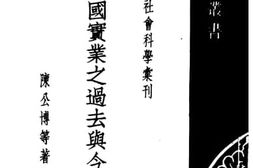 叢書
社會科學彙刊
國實業之過去與今
陳公博等著